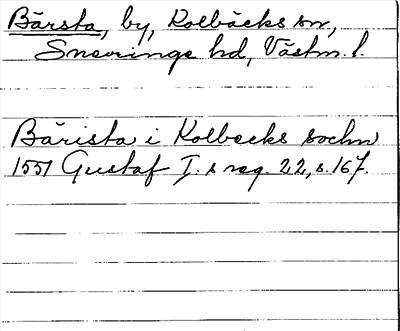 Bärsta, by, Kolbäcks sn,
Snevringe hd, Västm. l.
Bärista i Kolbecks sochn
1551 Gustaf I. s reg. 22, s. 167.